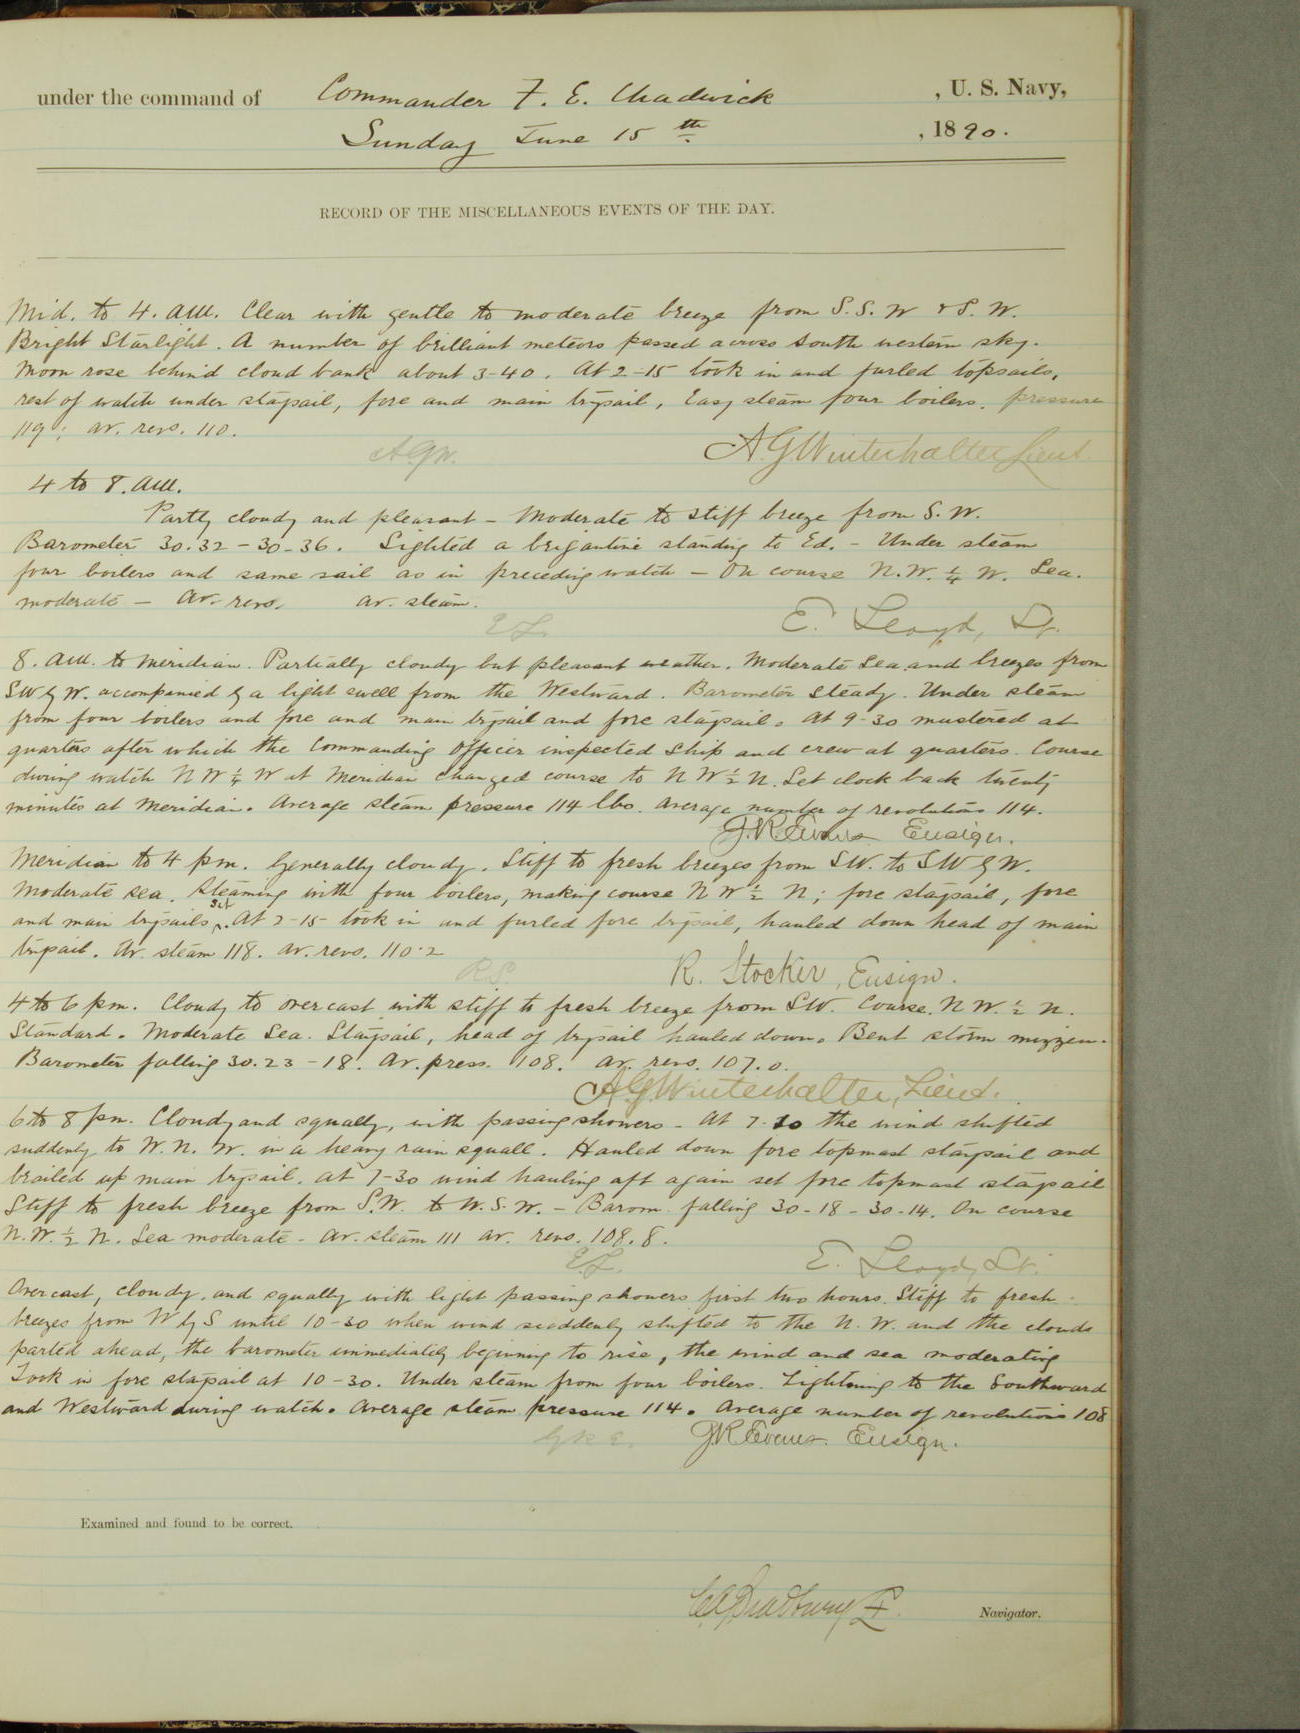 under the command of Commander F. E. Chadwick , U. S. Navy,
Sunday June 15th , 1890.
RECORD OF THE MISCELLANEOUS EVENTS OF THE DAY.
Mid. to 4. AM. Clear with gentle to moderate breeze from S.S.W & S.W.
Bright Starlight. A number of brilliant meteors passed across south western sky.
Moon rose behind cloud bank about 3-40. At 2-15 took in and furled topsails,
rest of watch under staysail, fore and main trysail, Easy steam four boilers. pressure
119; av. revs. 110.
A.G.W. A.G. Winterhalter Lieut.
4 to 8. AM.
Partly cloudy and pleasant – Moderate to stiff breeze from S.W.
Barometer 30.32 – 30-36. Sighted a brigantine standing to Ed. – Under steam
four boilers and same sail as in preceding watch – On course N.W. ¼ W. Sea.
moderate – Av. revs. av. steam.
E L. E. Lloyd, Lt.
8. AM. to Meridian. Partially cloudy but pleasant weather. Moderate sea and breezes from
SW by W. accompanied by a light swell from the Westward. Barometer steady. Under steam
from four boilers and fore and main trysail and fore staysail. At 9-30 mustered at
quarters after which the Commanding Officer inspected ship and crew at quarters. Course
during watch NW ¼ W at Meridian changed course to NW ½ N. Set clock back twenty
minutes at Meridian. Average steam pressure 114 lbs. Average number of revolutions 114.
G.R. Evans Ensign.
Meridian to 4 pm. Generally cloudy. Stiff to fresh breezes from SW. to SW by W.
Moderate sea. Steaming with four boilers, making course NW ½ N; fore staysail, fore
and main trysails set. At 2-15 took in and furled fore trysail, hauled down head of main
trysail. Av. steam 118. av. revs. 110.2
R.S. R. Stocker, Ensign.
4 to 6 pm. Cloudy to overcast with stiff to fresh breeze from SW. Course. NW. ½ N.
Standard. Moderate Sea. Staysail, head of trysail hauled down. Bent storm mizzen.
Barometer falling 30.23 - 18. Av. press. 108. av. revs. 107.0.
A.G. Winterhalter, Lieut.
6 to 8 pm. Cloudy and squally, with passing showers – At 7-10 the wind shifted
suddenly to W.N.W. in a heavy rain squall. Hauled down fore topmast staysail and
brailed up main trysail. at 7-30 wind hauling aft again set fore topmast staysail
Stiff to fresh breeze from S.W. to W.S.W. – Barom. falling 30-18 - 30-14. On course
N.W. ½ N. Sea moderate – av. steam 111 av. revs. 108.8.
E.L. E. Lloyd, Lt.
Overcast, cloudy, and squally with light passing showers first two hours. Stiff to fresh
breezes from W by S until 10-30 when wind suddenly shifted to the N.W. and the clouds
parted ahead, the barometer immediately beginning to rise, the wind and sea moderating
Took in fore staysail at 10-30. Under steam from four boilers. Lightning to the Southward
and Westward during watch. Average steam pressure 114. Average number of revolutions 108
G.R.E. G.R. Evans. Ensign.
Examined and found to be correct.
Navigator.